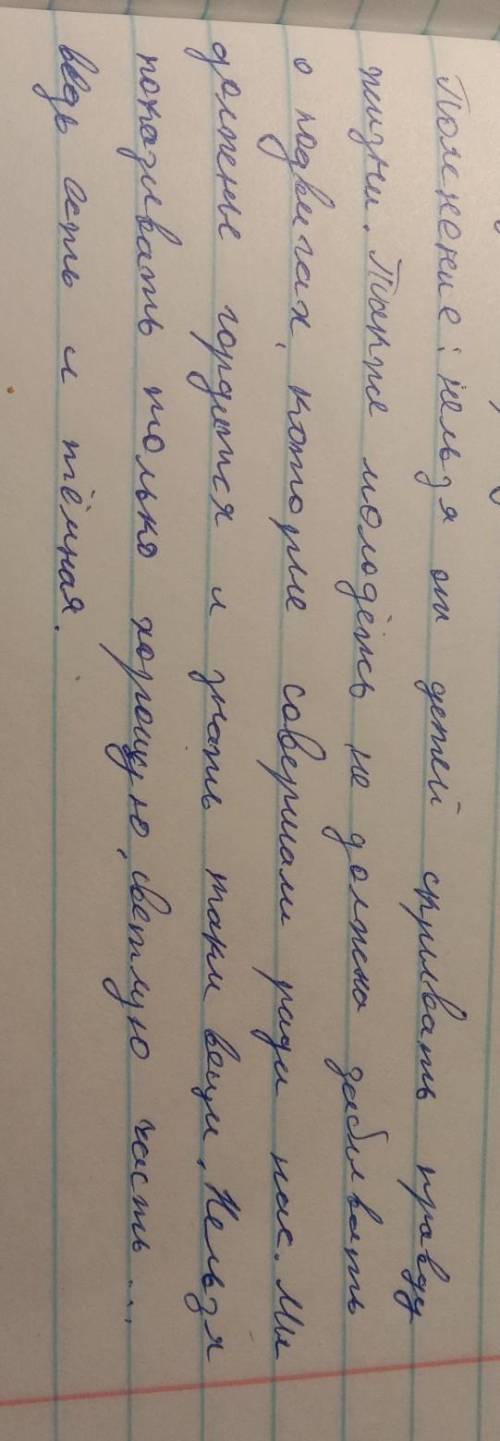 Пояснение: нельзя от детей скрывать правду
жизни. Также молодёжь не должна забывать
о подвигах, которые совершали ради нас. Мы
должены гордится и знать таки вещи. Нельзя
показывать только хорошую, светлую часть...
ведь есть и тёмная.